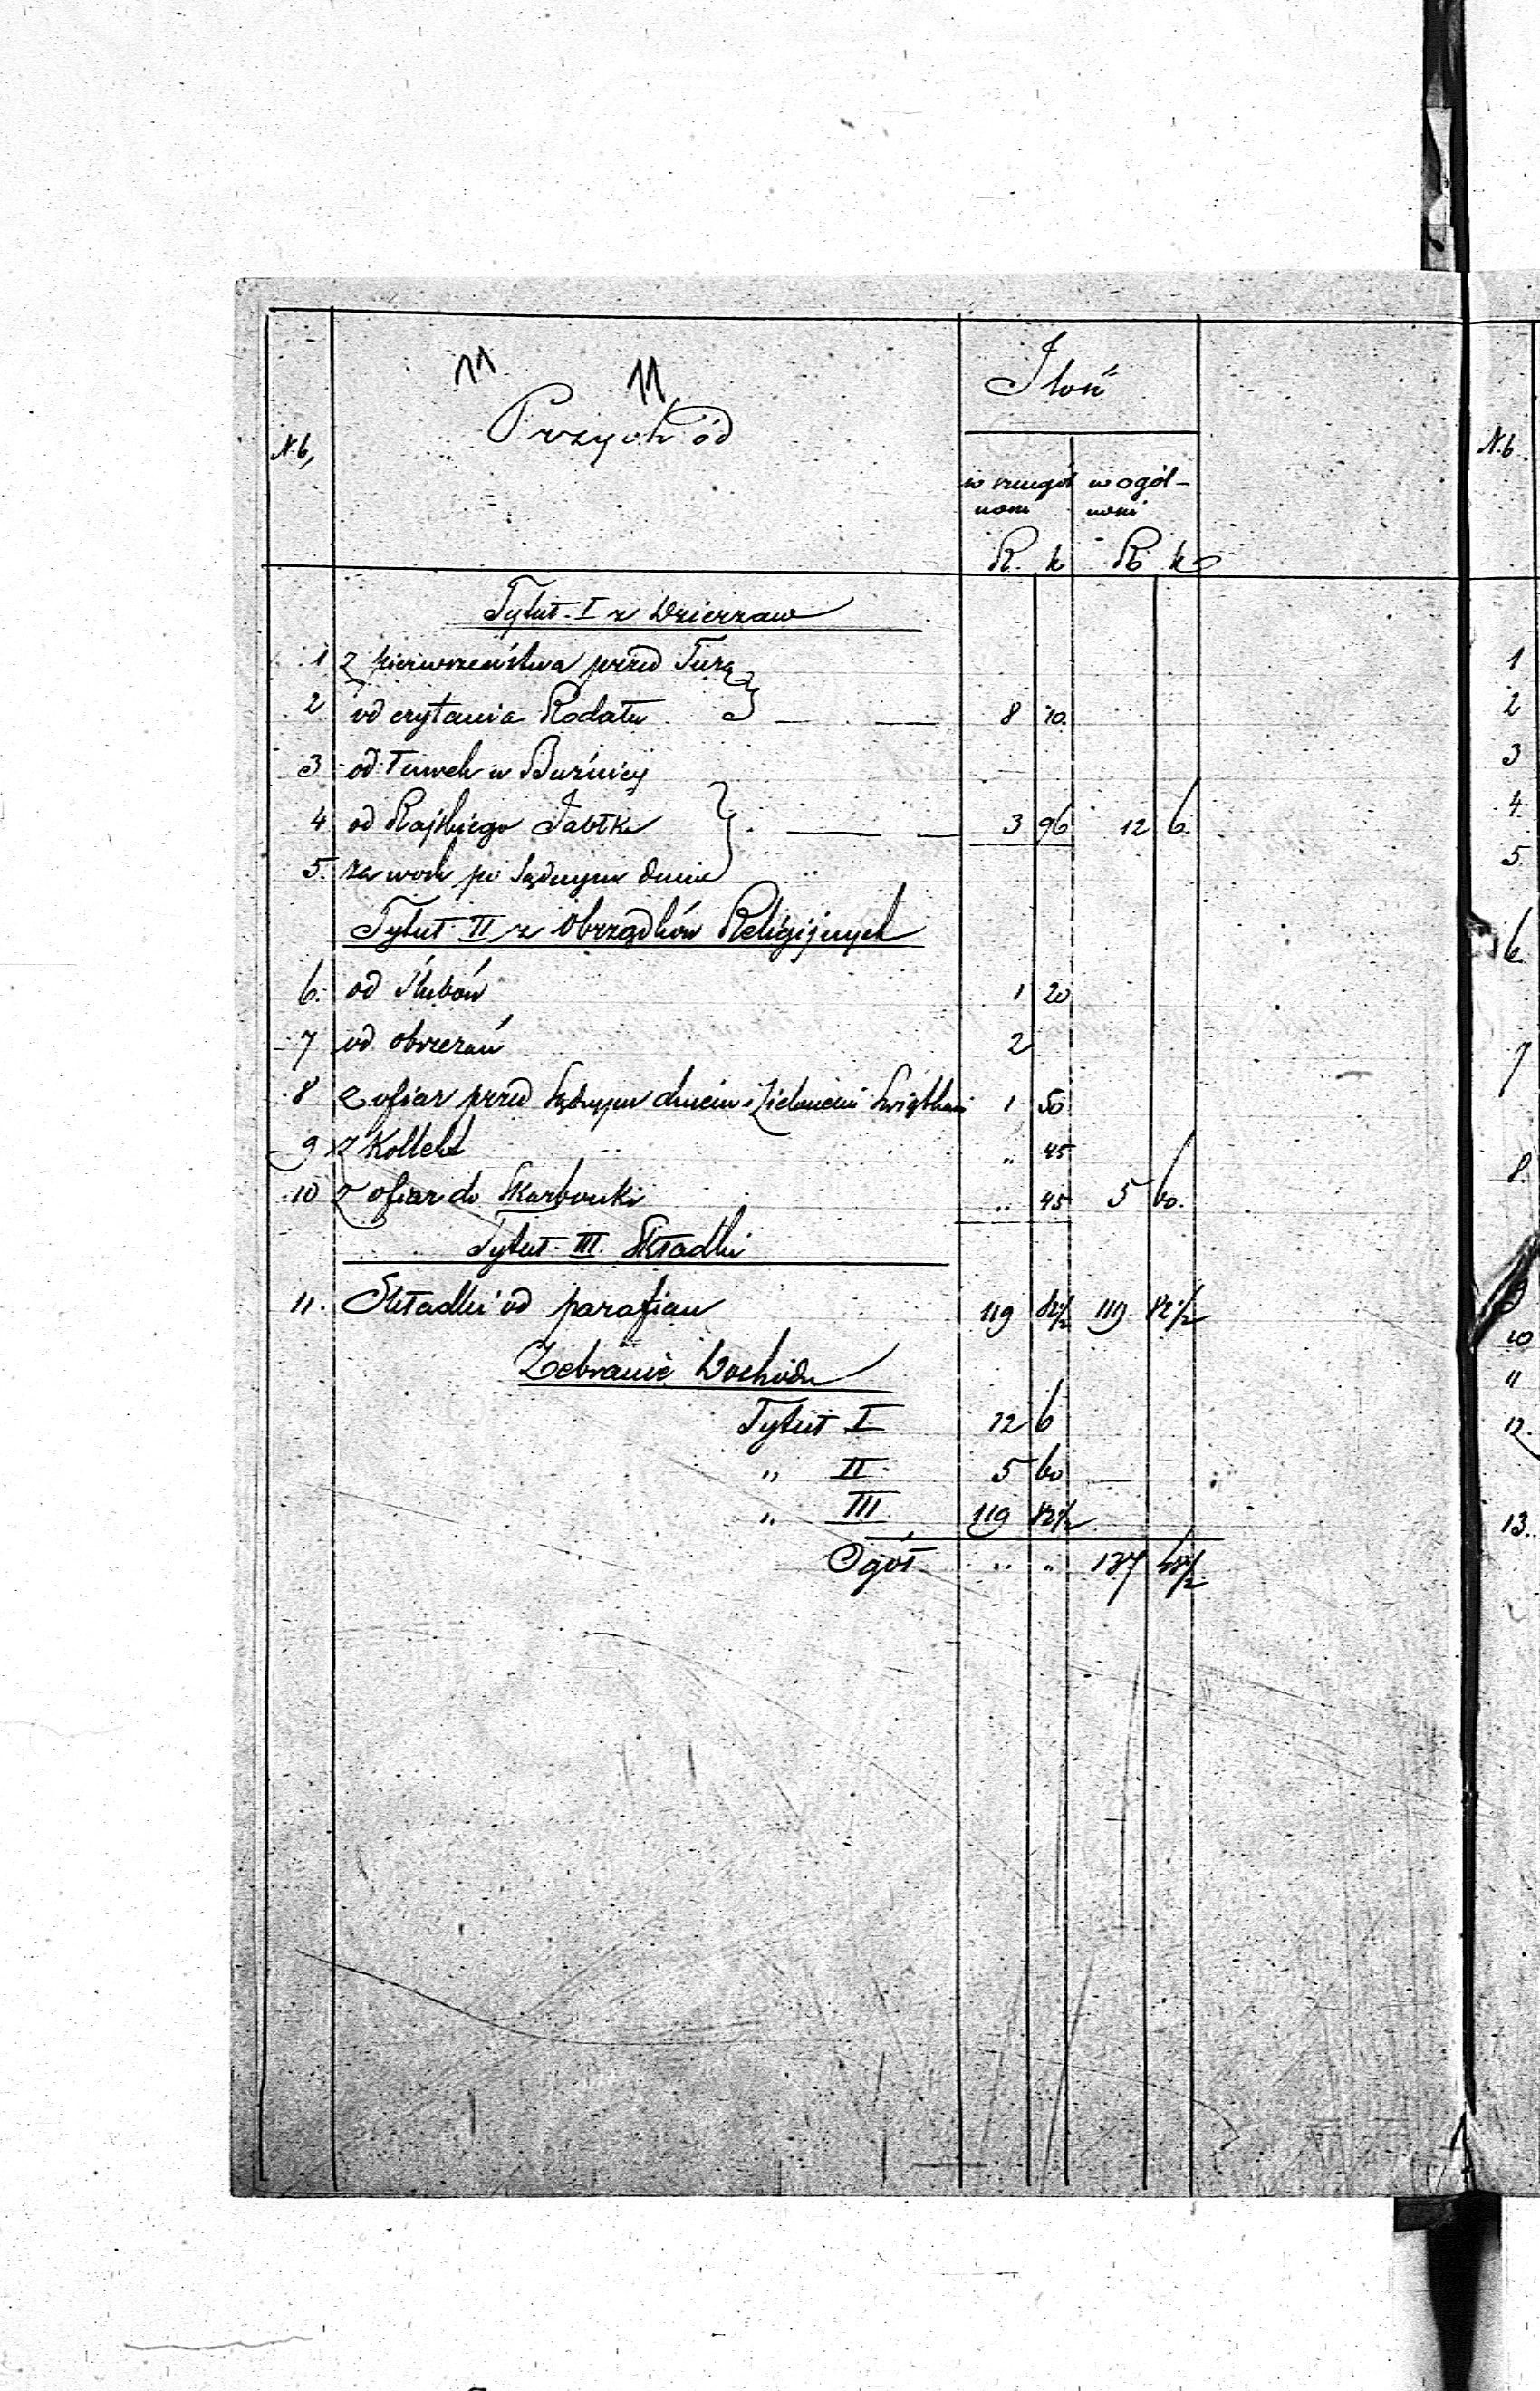 11 11
Przychód
Ilość
N.b,
w szczegól w ogól-
ności ności
R. k R k
Tytuł I z Dzierzaw
1 z pierwszeństwa przed Torą
2 od czytania Rodału 8 10.
3 od Ławek w Bużnicy
4 od Rajskiego Jabłka 3 96 12 6.
5. za wosk po Sądnym dniu
Tytuł II z Obrządków Religijnych
6. od Ślubów 1 20
7 od obrzezań 2
8 z ofiar przed Sądnym dniem i Zielonemi Świątkami 1 50
9 z Kollekt " 45
10 z ofiar do Skarbonki " 45 5 60.
Tytuł III. Składki
11. Składki od parafian 119 82½ 119 82½
Zebranie Dochodu
Tytuł I 12 6
" II 5 60
" III 119 82½
Ogół " " 137 48½
N.b.
1
2
3
4.
5.
6.
7
8.
10
11
12.
13.